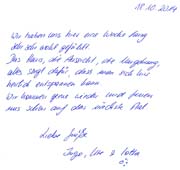 18.10.2014
Wir haben uns hier eine Woche lang
sehr sehr wohl gefühlt.
Das Haus, die Aussicht, die Umgebung,
alles sorgt dafür, dass man sich hier
herrlich entspannen kann.
Wir kommen gerne wieder und freuen
uns schon auf das nächste Mal
Liebe Grüße
Ingo, Ute &